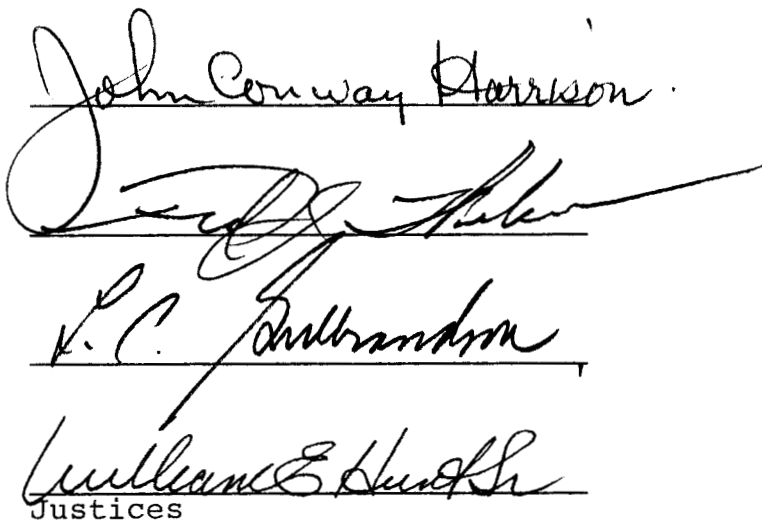 John Conway Harrison
L. C. Gulbrandson
William E Hunt Sr
Justices